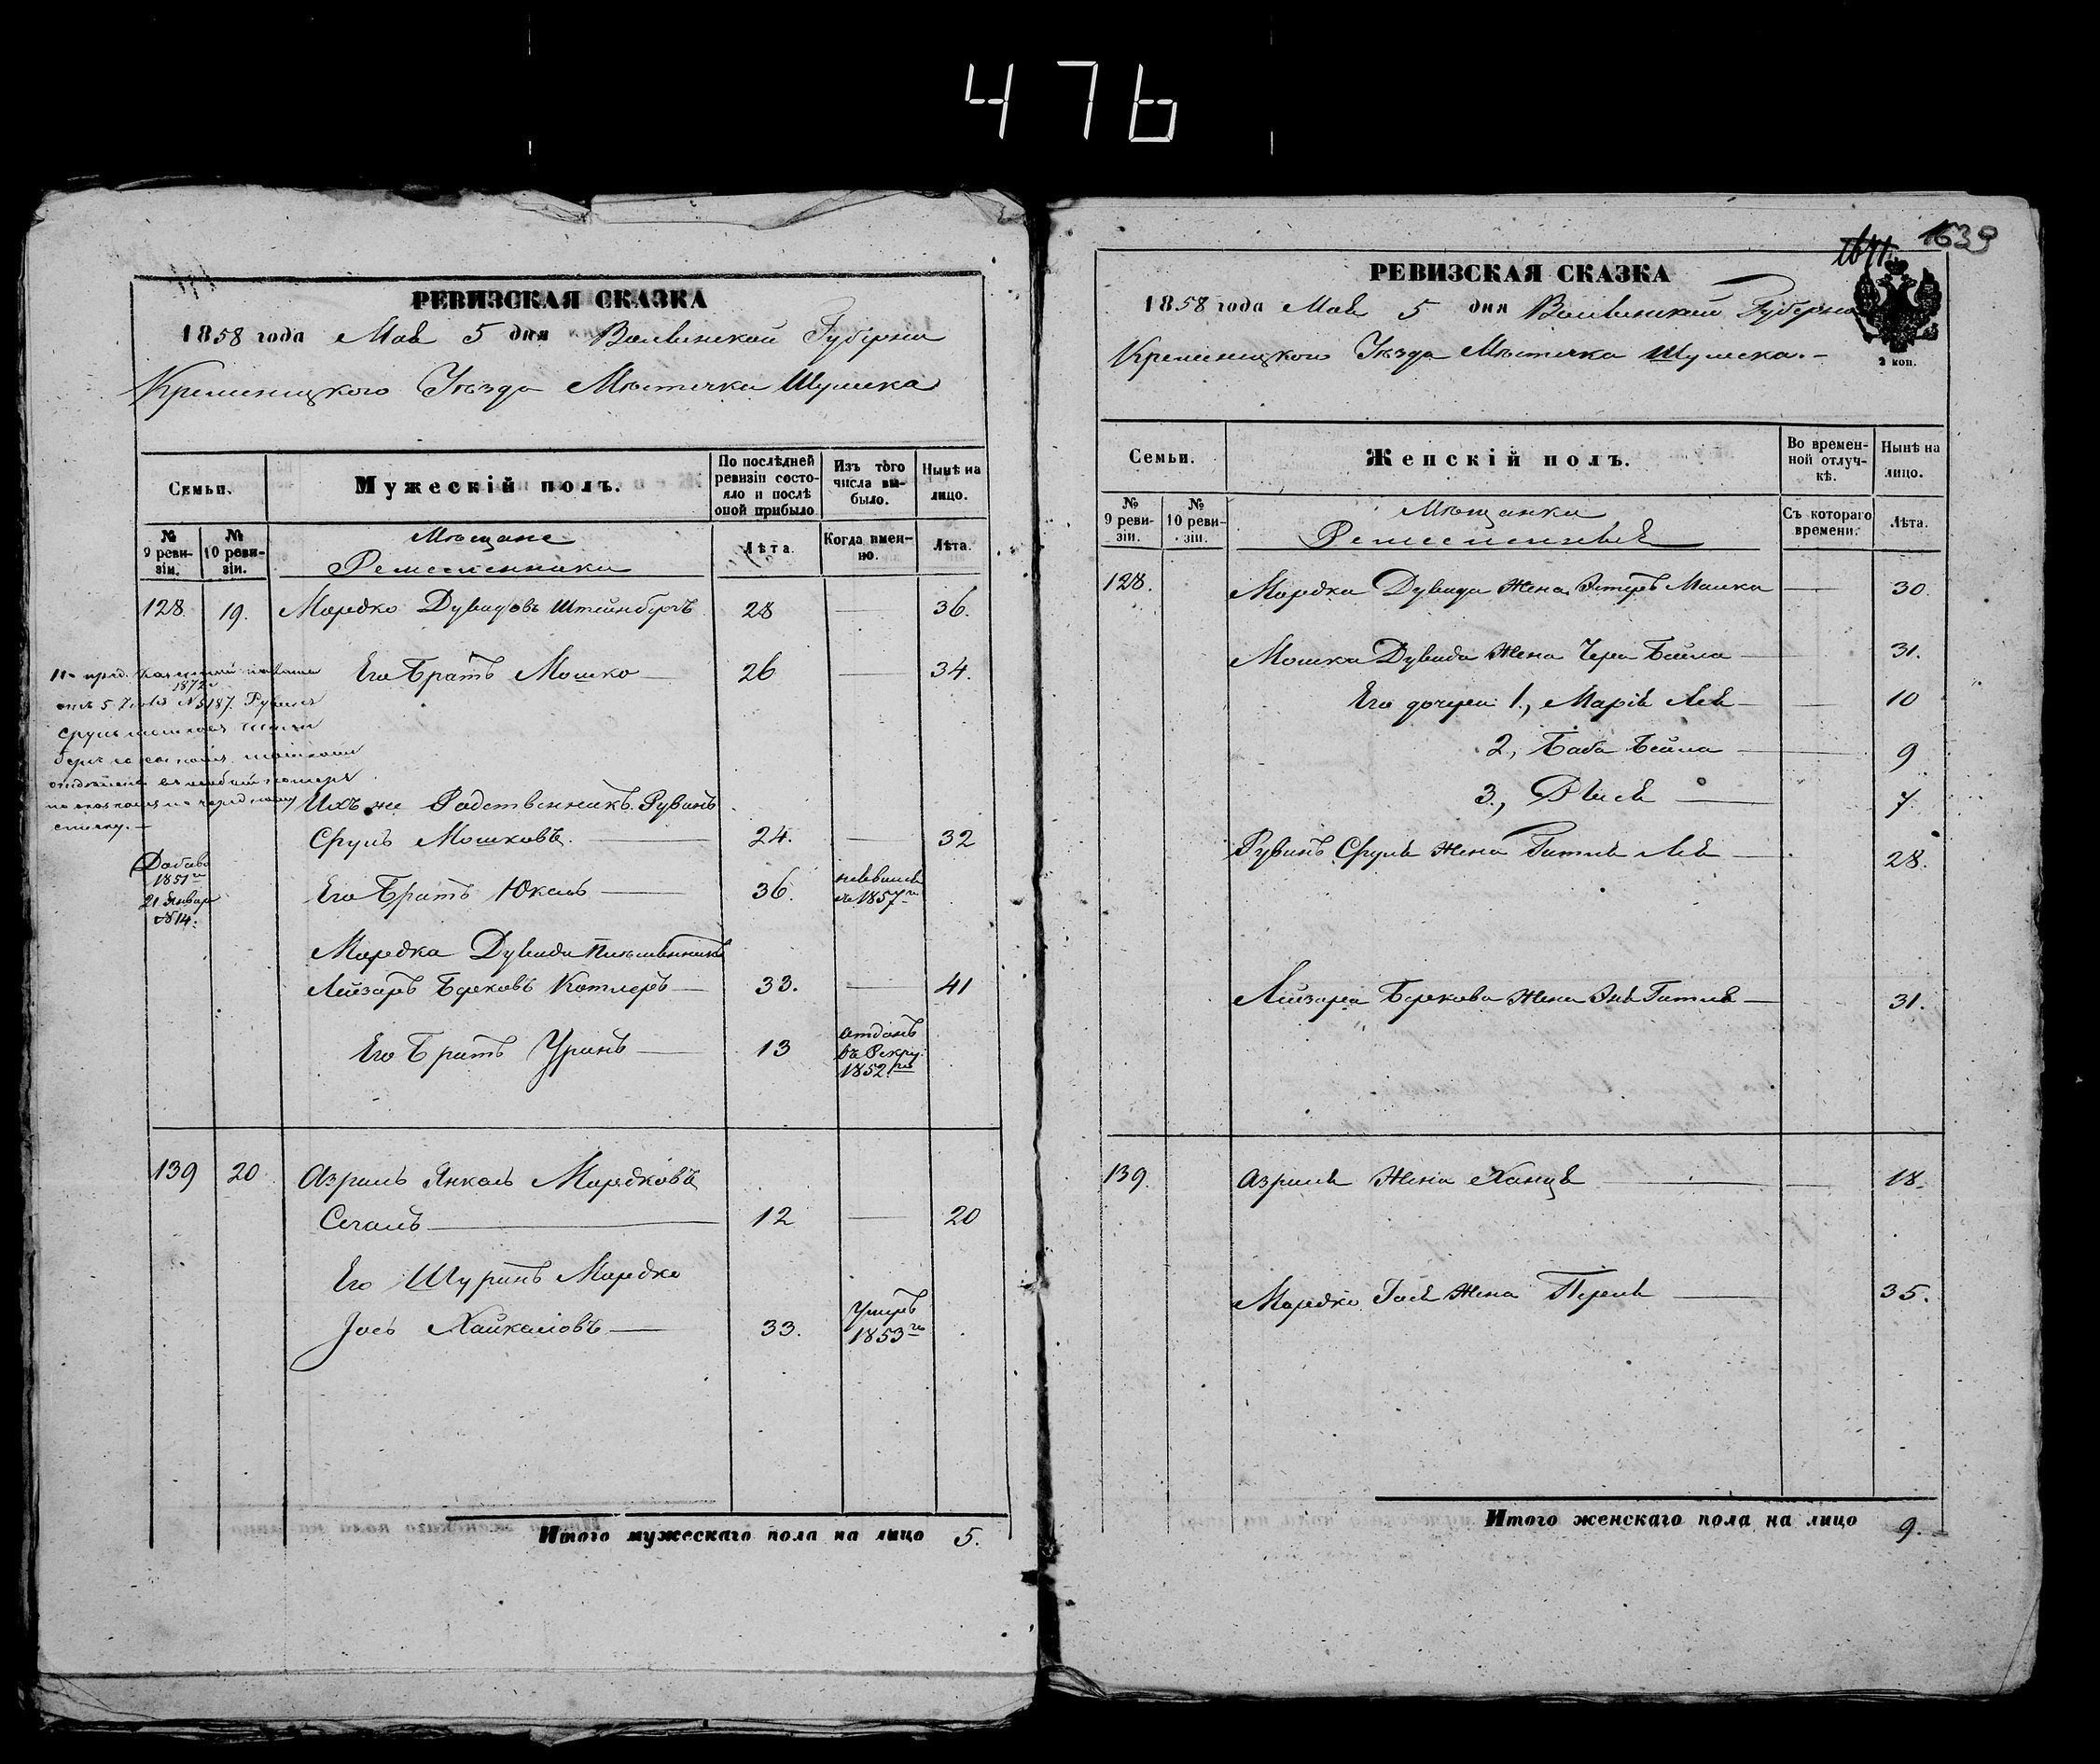 476
РЕВИЗСКАЯ СКАЗКА
1858 года Мая 5 дня Волынской Губерніи
Кременецкого Уѣзда Мѣстечка Шумска
Семьи.
Мужескій полъ.
По послѣдней ревизіи состояло и послѣ оной прибыло
Изъ того числа выбыло.
Нынѣ на лицо.
№ 9 ревизіи.
№ 10 ревизіи.
Мѣщане
Ремесленники
Лѣта.
Когда именно.
Лѣта.
128. 19. Мордко Дувидовъ Штейнбергъ 28 — 36.
Его Братъ Мошко — 26 — 34.
1872
отъ 5 № 5187 Рувинъ
Ихъ же Родственникъ Рувинъ
Сруль Мошковъ. — 24. — 32
Добавл
1851 го
21 Январ
№ 14.
Его Братъ Юкель — 36. неявился съ 1857 го
Мордка Дувида Племянникъ
Лейзоръ Берковъ Котлеръ — 33. — 41
Его Братъ Уринъ — 13 отданъ въ Рекру. 1852 го
139 20 Азриль Янкель Мордковъ
Сегаль — 12 — 20
Его Шуринъ Мордко
Іось Хайкеловъ — 33. Умеръ 1853 го
Итого мужескаго пола на лицо 5.
1639
РЕВИЗСКАЯ СКАЗКА
1858 года Мая 5 дня Волынской Губерніи
Кременецкого Уѣзда Мѣстечка Шумска. —
2 коп.
Семьи.
Женскій полъ.
Во временной отлучкѣ.
Нынѣ на лицо.
№ 9 ревизіи.
№ 10 ревизіи.
Мѣщанки
Ремесленныя
Съ котораго времени.
Лѣта.
128. Мордка Дувида Жена Эстеръ Малка — 30.
Мошка Дувида Жена Черна Бейла — 31.
Его дочери 1., Марія Лея — 10
2, Баба Бейла — 9
3., Двися — 7.
Рувинъ Сруля Жена Гитля Лея — 28.
Лейзора Беркова Жена Эня Гитля — 31.
139. Азриля Жена Ханця — 18.
Мордко Іося Жена Перля — 35.
Итого женскаго пола на лицо 9.